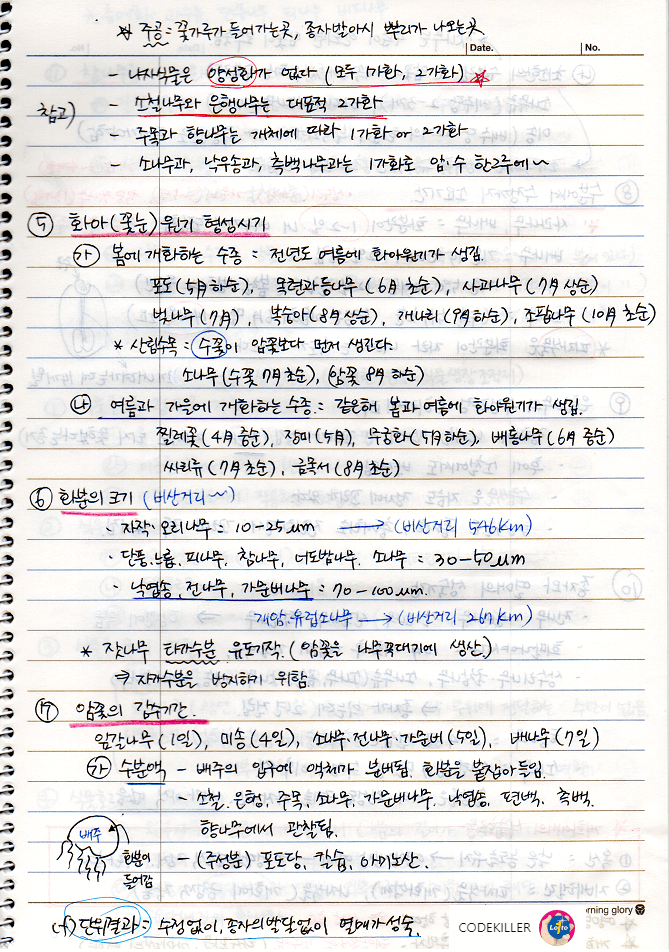 * 주공 = 꽃가루가 들어가는곳, 종자발아시 뿌리가 나오는곳
Date. No.
- 나자식물은 양성화가 없다 (모두 1가화, 2가화) *
참고) - 소철나무와 은행나무는 대표적 2가화
- 주목과 향나무는 개체에 따라 1가화 or 2가화
- 소나무과, 낙우송과, 측백나무과는 1가화로 암·수 한그루에~
⑤ 화아(꽃눈) 원기 형성시기
㉮ 봄에 개화하는 수종 = 전년도 여름에 화아원기가 생김.
포도(5月하순), 목련과등나무(6月초순), 사과나무(7月상순)
벚나무(7月), 복숭아(8月상순), 개나리(9月하순), 조팝나무(10月초순)
* 산림수목 = 수꽃이 암꽃보다 먼저 생긴다
소나무(수꽃 7月초순), (암꽃 8月하순)
㉯ 여름과 가을에 개화하는 수종 = 같은해 봄과 여름에 화아원기가 생김.
찔레꽃(4月중순), 장미(5月), 무궁화(5月하순), 배롱나무(6月중순)
싸리류(7月초순), 금목서(8月초순)
⑥ 화분의 크기 (비산거리~)
· 자작·오리나무 = 10-25μm → (비산거리 546km)
· 단풍.느릅.피나무, 참나무, 너도밤나무. 소나무 = 30-50μm
· 낙엽송, 전나무, 가문비나무 = 70-100μm.
개암.유럽소나무 → (비산거리 267km)
* 잣나무 타가수분 유도기작. (암꽃을 나무꼭대기에 생산)
⇒ 자가수분을 방지하기 위함.
⑦ 암꽃의 감수기간.
잎갈나무(1일), 미송(4일), 소나무·전나무·가문비(5일), 배나무(7일)
㉮ 수분액 - 배주의 입구에 액체가 분비됨. 화분을 붙잡아들임.
- 소철.은행, 주목, 소나무, 가문비나무, 낙엽송, 편백, 측백.
향나무에서 관찰됨.
배주
화분이
들어감
- (주성분) 포도당, 칼슘, 아미노산.
나) 단위결과 = 수정없이, 종자의발달없이 열매가성숙.
CODEKILLER
Lofto
rning glory